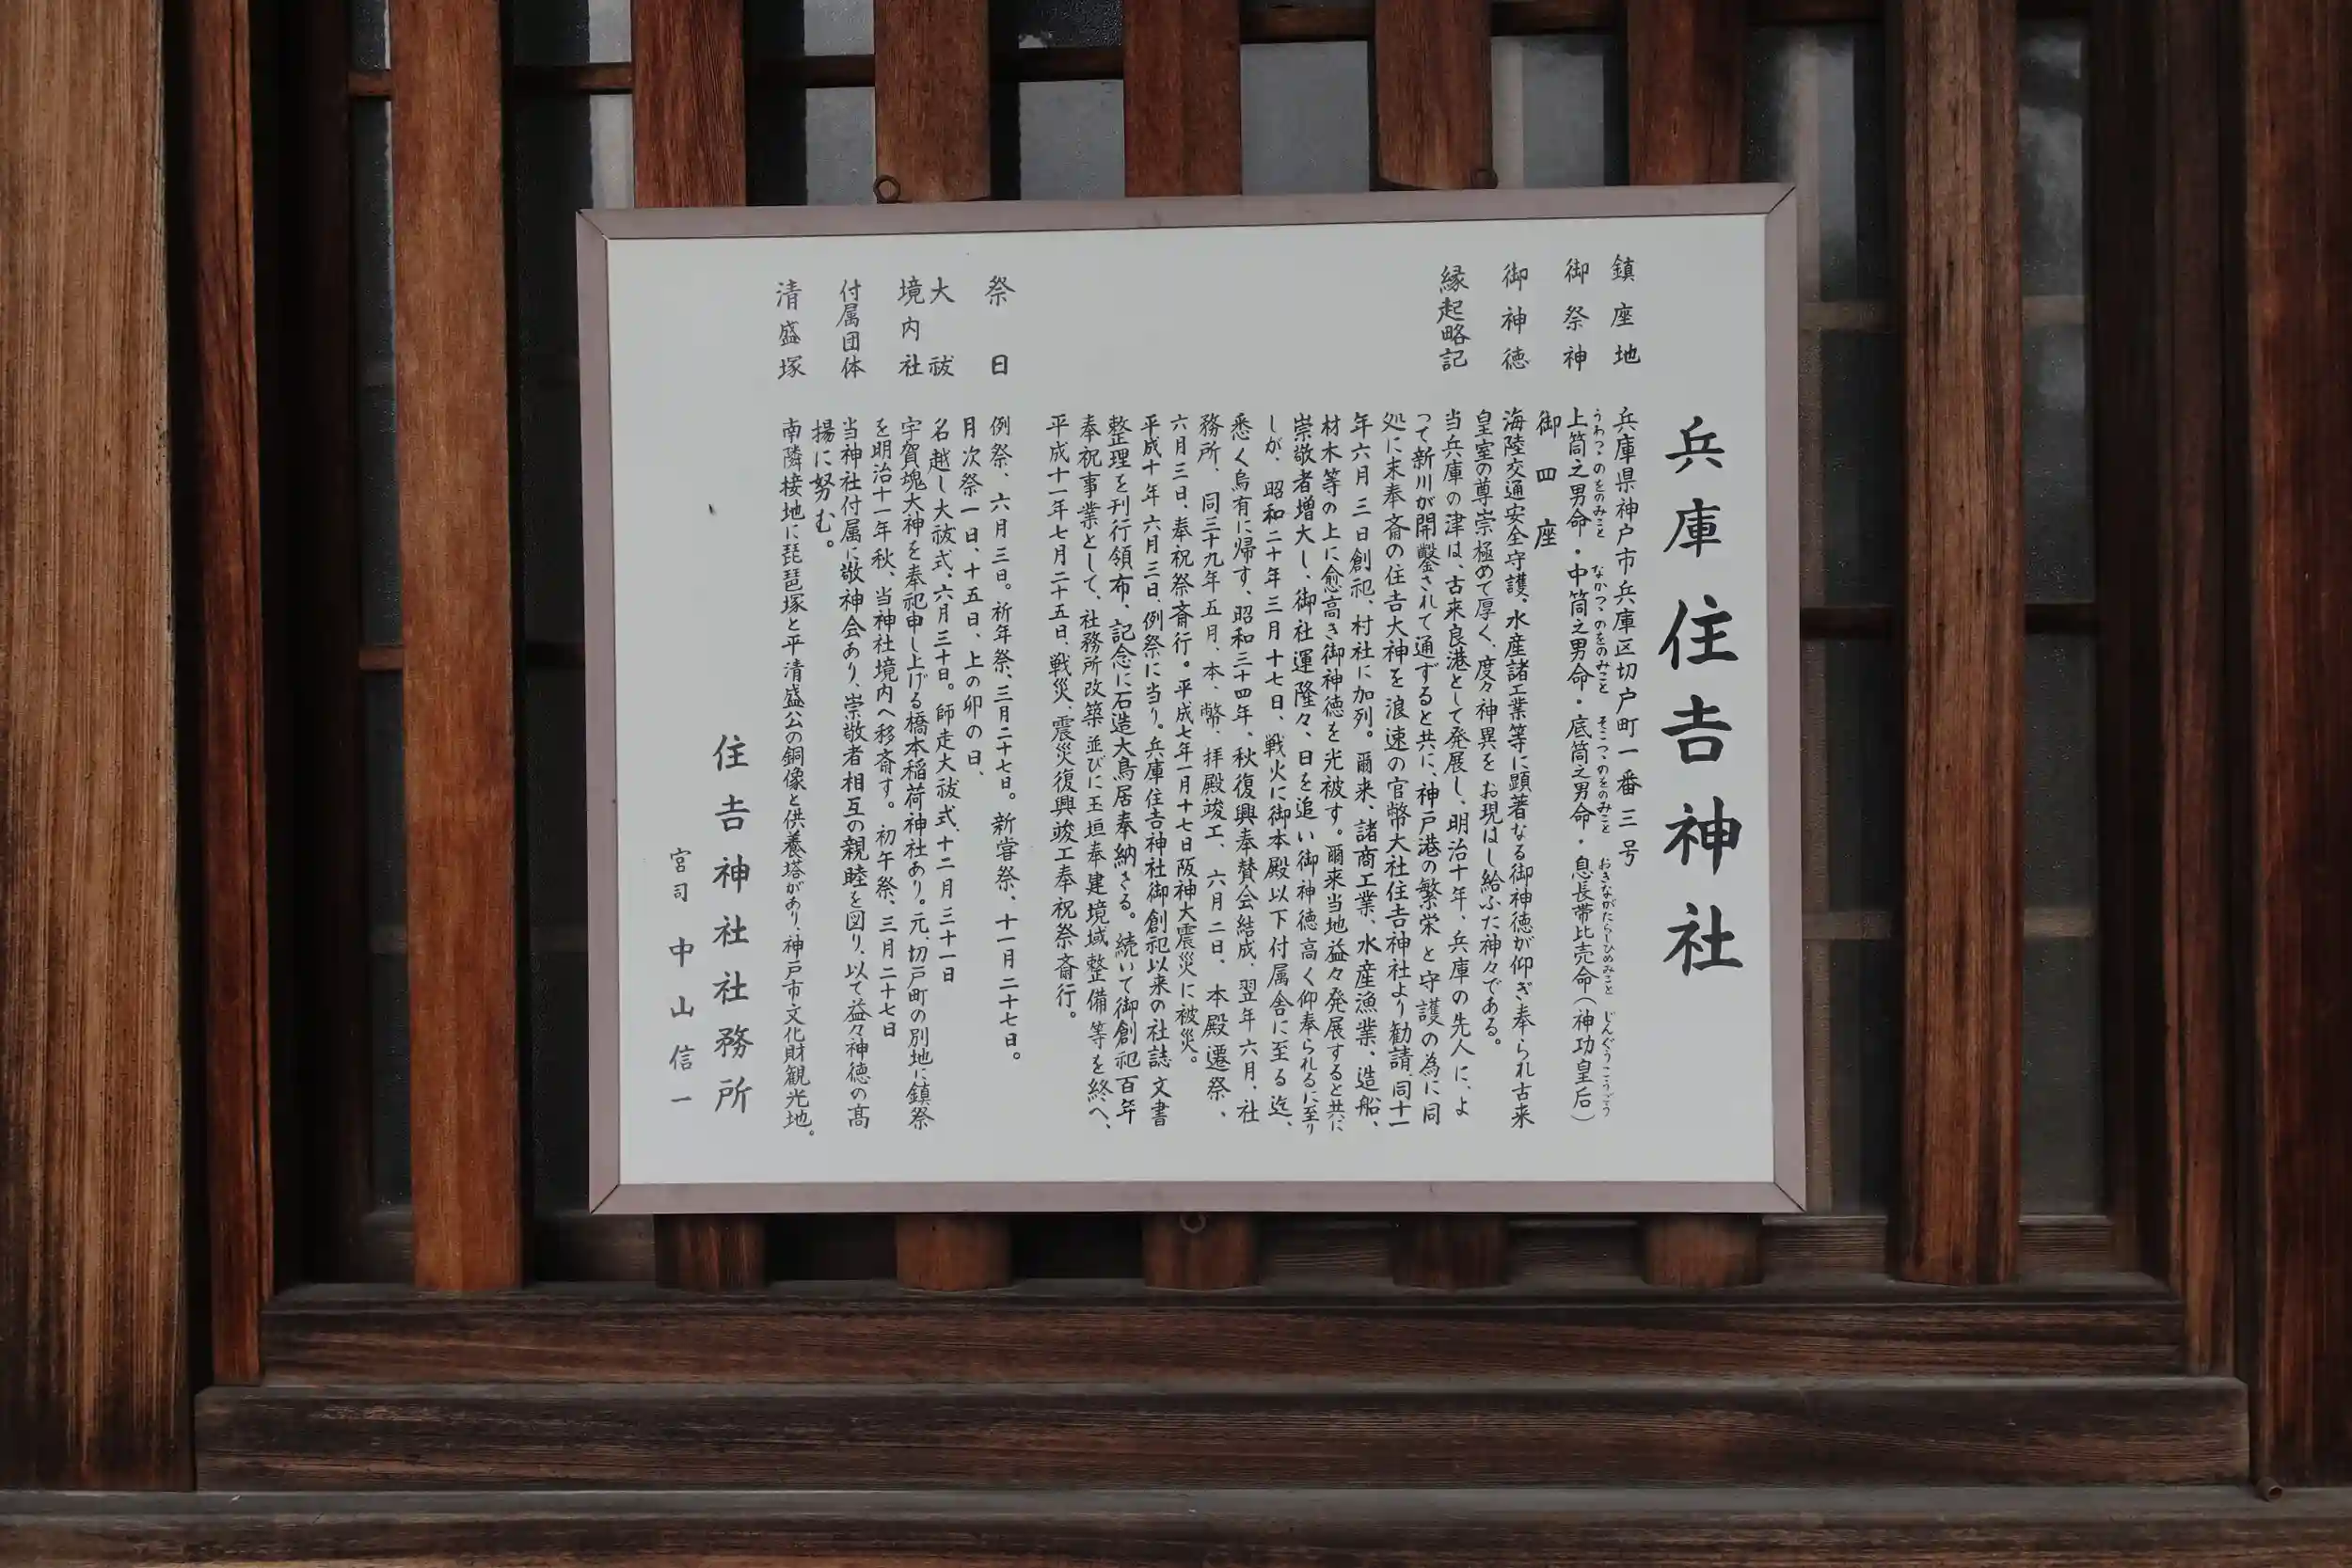 兵庫住吉神社
鎮座地　兵庫県神戸市兵庫区切戸町一番三号
うわつゝのをのみこと　なかつゝのをのみこと　そこつゝのをのみこと　おきながたらしひめみこと　じんぐうこうごう
御祭神　上筒之男命・中筒之男命・底筒之男命・息長帯比売命（神功皇后）
御四座
御神徳　海陸交通安全守護、水産諸工業等に顕著なる御神徳が仰ぎ奉られ古来
皇室の尊崇極めて厚く、度々神異をお現はし給ふた神々である。
縁起略記　当兵庫の津は、古来良港として発展し、明治十年、兵庫の先人に、よ
って新川が開鑿されて通ずると共に、神戸港の繁栄と守護の為に同
処に末奉斎の住吉大神を浪速の官幣大社住吉神社より勧請、同十一
年六月三日創祀、村社に加列。爾来、諸商工業、水産漁業、造船、
材木等の上に愈高き御神徳を光被す。爾来当地益々発展すると共に
崇敬者増大し、御社運隆々、日を追い御神徳高く仰奉られるに至り
しが、昭和二十年三月十七日、戦火に御本殿以下付属舎に至る迄、
悉く烏有に帰す、昭和三十四年、秋復興奉賛会結成、翌年六月、社
務所、同三十九年五月、本、幣、拝殿竣工、六月二日、本殿遷祭、
六月三日、奉祝祭斎行。平成七年一月十七日阪神大震災に被災。
平成十年六月三日、例祭に当り。兵庫住吉神社御創祀以来の社誌文書
整理を刊行領布、記念に石造大鳥居奉納さる。続いて御創祀百年
奉祝事業として、社務所改築並びに玉垣奉建境域整備等を終へ、
平成十一年七月二十五日、戦災、震災復興竣工奉祝祭斎行。
祭日　例祭、六月三日。祈年祭、三月二十七日。新嘗祭、十一月二十七日。
月次祭一日、十五日、上の卯の日、
大祓　名越し大祓式、六月三十日。師走大祓式、十二月三十一日
境内社　宇賀塊大神を奉祀申し上げる橋本稲荷神社あり。元、切戸町の別地に鎮祭
を明治十一年秋、当神社境内へ移斎す。初午祭、三月二十七日
付属団体　当神社付属に敬神会あり、崇敬者相互の親睦を図り、以て益々神徳の高
揚に努む。
清盛塚　南隣接地に琵琶塚と平清盛公の銅像と供養塔があり、神戸市文化財観光地。
住吉神社社務所
宮司　中山信一